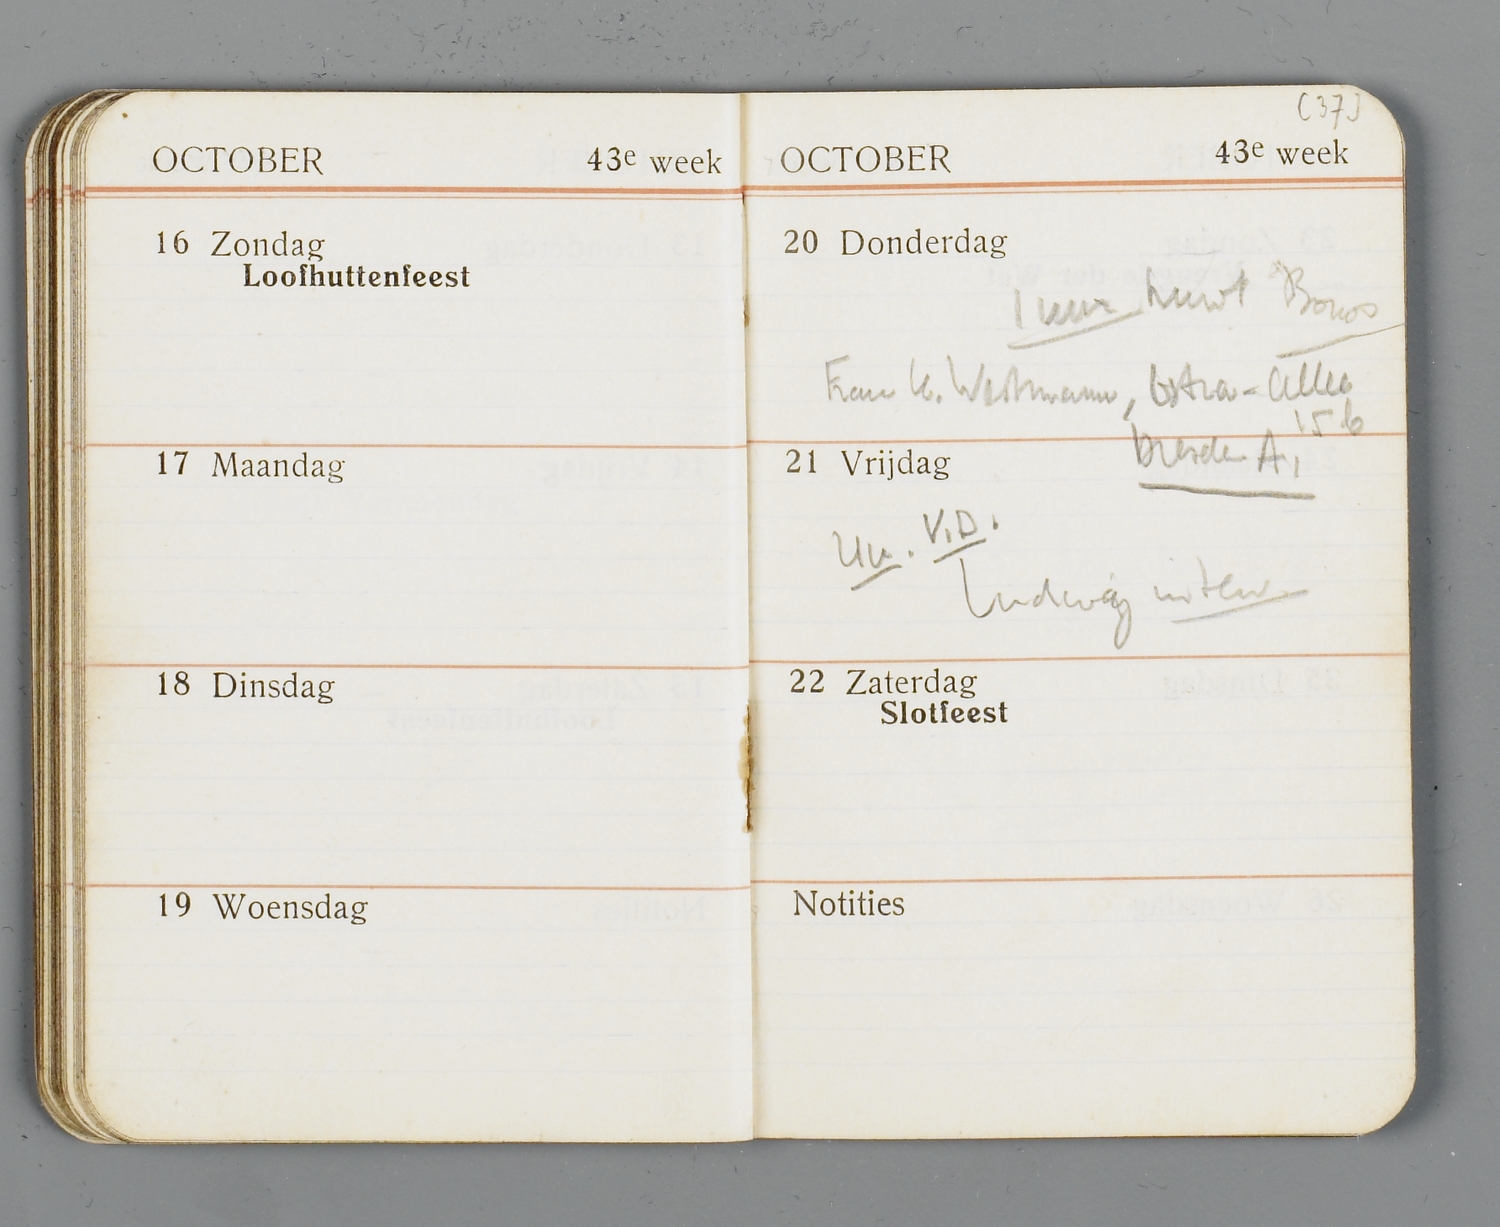 OCTOBER 43e week
16 Zondag
Loofhuttenfeest
17 Maandag
18 Dinsdag
19 Woensdag
[37]
OCTOBER 43e week
20 Donderdag
Frau K. Westmann, Ostra-Allee
15 b
Dresden A,
21 Vrijdag
V.D.
Ludwig
22 Zaterdag
Slotfeest
Notities